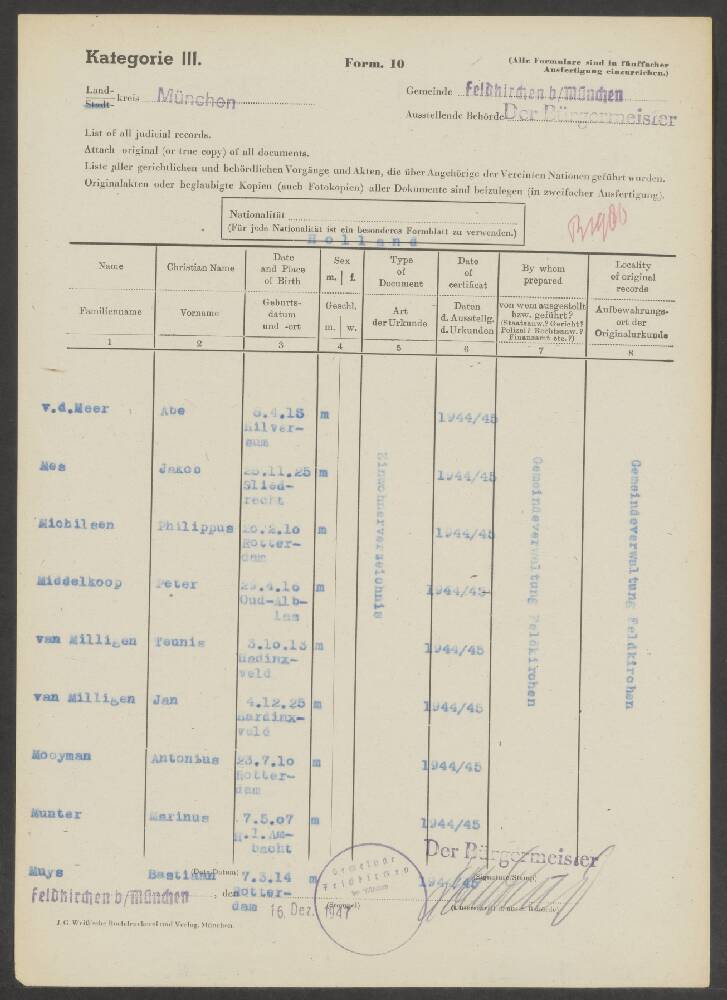 Kategorie III.
Form. 10
(Alle Formulare sind in fünffacher
Ausfertigung einzureichen.)
Land-
Stadt-
kreis München
Gemeinde Feldkirchen b/München
Ausstellende Behörde Der Bürgermeister
List of all judicial records.
Attach original (or true copy) of all documents.
Liste aller gerichtlichen und behördlichen Vorgänge und Akten, die über Angehörige der Vereinten Nationen geführt wurden.
Originalakten oder beglaubigte Kopien (auch Fotokopien) aller Dokumente sind beizulegen (in zweifacher Ausfertigung).
Nationalität
(Für jede Nationalität ist ein besonderes Formblatt zu verwenden.)
Holland
Name Christian Name Date and Place of Birth Sex m. f. Type of Document Date of certificat By whom prepared Locality of original records
Familienname Vorname Geburts-datum und -ort Geschl. m. w. Art der Urkunde Daten d. Ausstellg. d. Urkunden von wem ausgestellt bzw. geführt? (Staatsanw.? Gericht? Polizei? Rechtsanw.? Finanzamt etc.?) Aufbewahrungs-ort der Originalurkunde
1 2 3 4 5 6 7 8
v.d.Meer Abe 6.4.18 m 1944/45
Hilver-
sum
Mes Jakob 25.11.25 m 1944/45
Slied-
recht
Michilsen Philippus 20.2.10 m 1944/45
Rotter-
dam
Middelkoop Peter 29.4.16 m 1944/45
Oud-Alb-
las
van Milligen Teunis 3.10.13 m 1944/45
Hadinx-
veld
van Milligen Jan 4.12.25 m 1944/45
Hardinx-
veld
Mooyman Antonius 23.7.10 m 1944/45
Rotter-
dam
Munter Marinus 7.5.07 m 1944/45
H.I.Am-
bacht
Muys Bastiaan 7.3.14 m 1944/45
Rotter-
dam
Einwohnerverzeichnis
Gemeindeverwaltung Feldkirchen
Gemeindeverwaltung Feldkirchen
Der Bürgermeister
Feldkirchen b/München, den 16. Dez. 1947
(Stempel)
Gemeinde
Feldkirchen
bei München
J. G. Weiß'sche Buchdruckerei und Verlag, München.